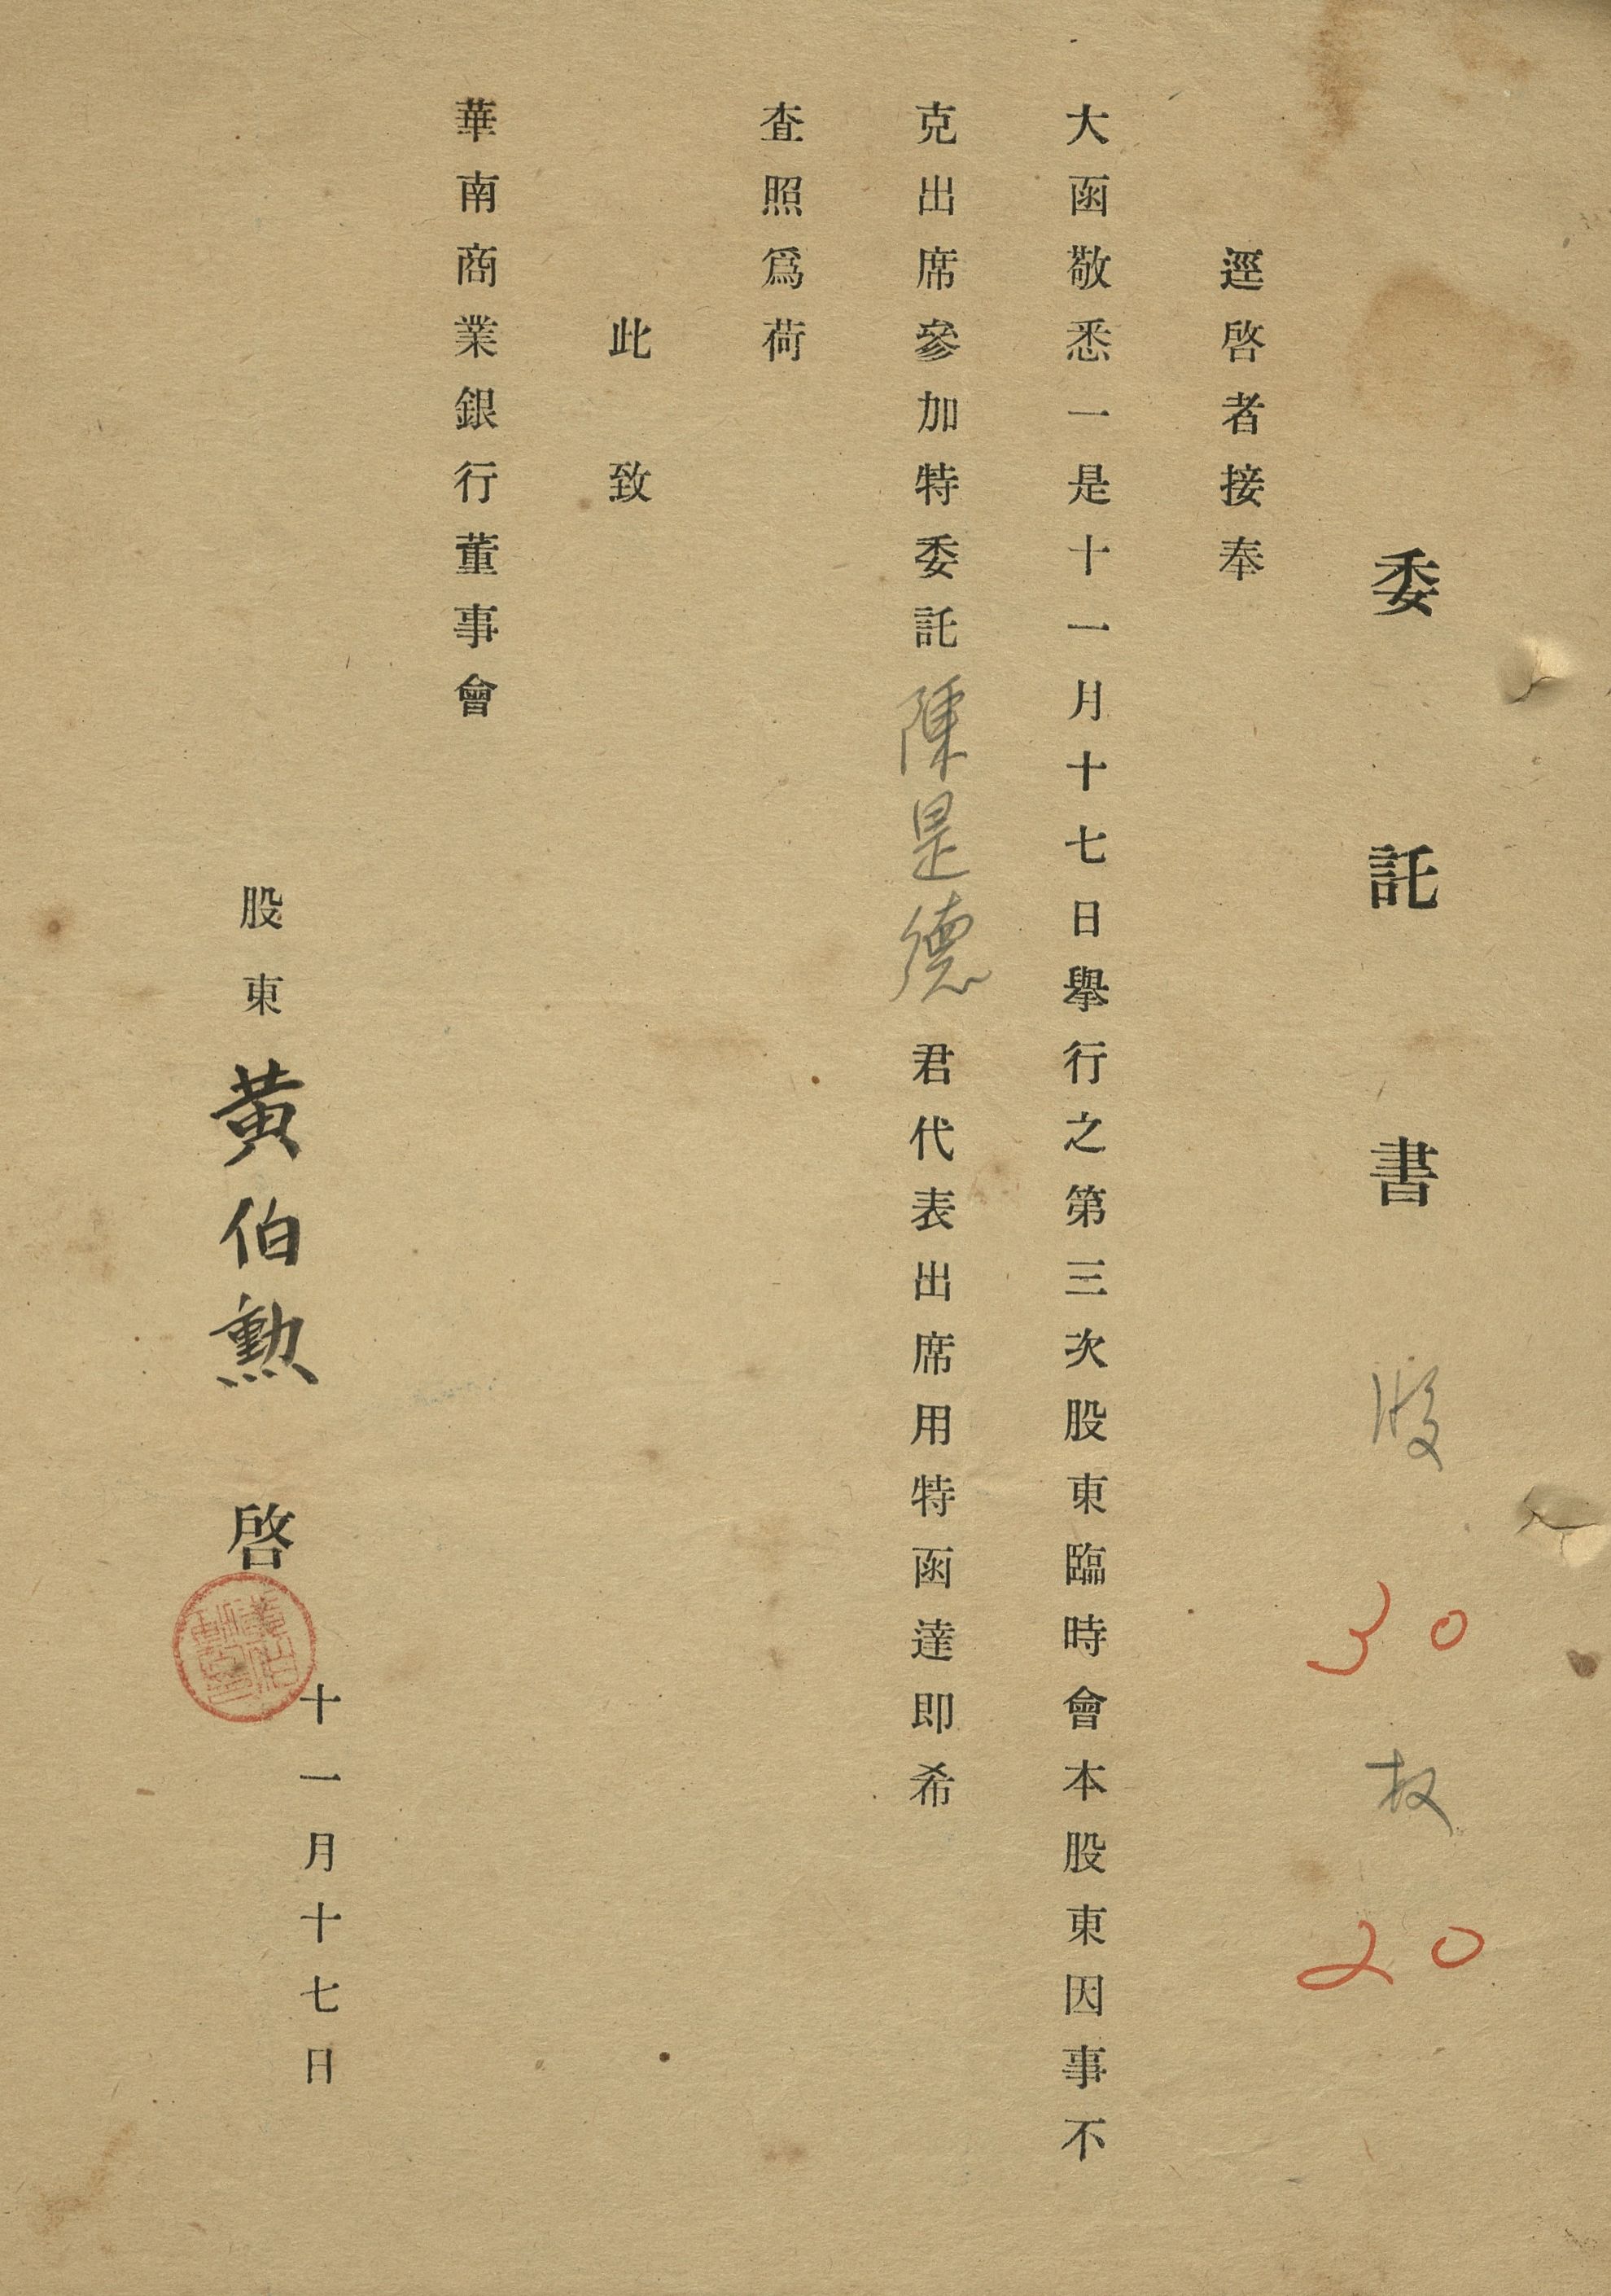 委託書 股 30 权 20
逕啓者接奉
大函敬悉一是十一月十七日舉行之第三次股東臨時會本股東因事不
克出席參加特委託陳是德君代表出席用特函達即希
査照爲荷
此致
華南商業銀行董事會
十一月十七日
股東 黃伯勲 啓